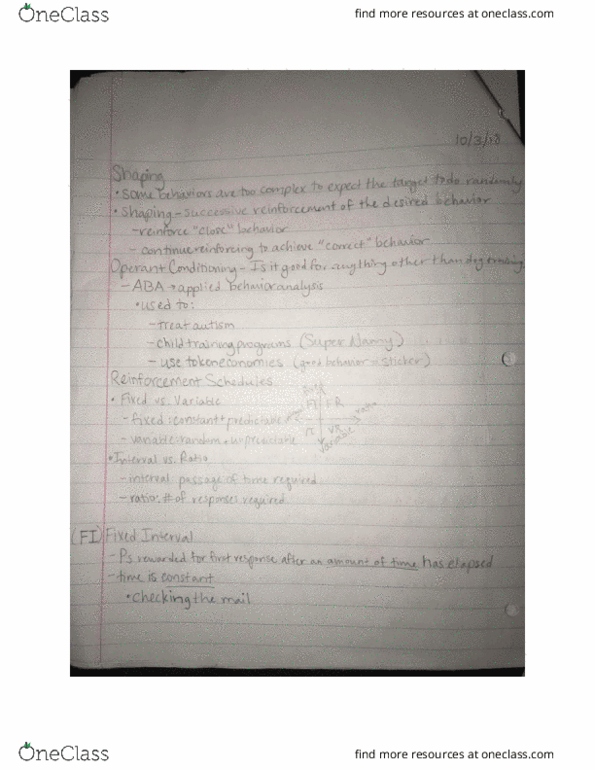 OneClass
find more resources at oneclass.com
10/3/18
Shaping
• some behaviors are too complex to expect the target to do randomly
• Shaping - successive reinforcement of the desired behavior
- reinforce "close" behavior
- continue reinforcing to achieve "correct" behavior
Operant Conditioning - Is it good for anything other than dog training
- ABA → applied behavior analysis
• used to:
- treat autism
- child training programs (Super Nanny)
- use token economies (good behavior = sticker)
Reinforcement Schedules
• Fixed vs. Variable
- fixed: constant + predictable
- variable: random + unpredictable
FI FR
ratio
VR
variable
• Interval vs. Ratio
- interval: passage of time required
- ratio: # of responses required
(FI) Fixed Interval
- Ps rewarded for first response after an amount of time has elapsed
- time is constant
• checking the mail
OneClass
find more resources at oneclass.com